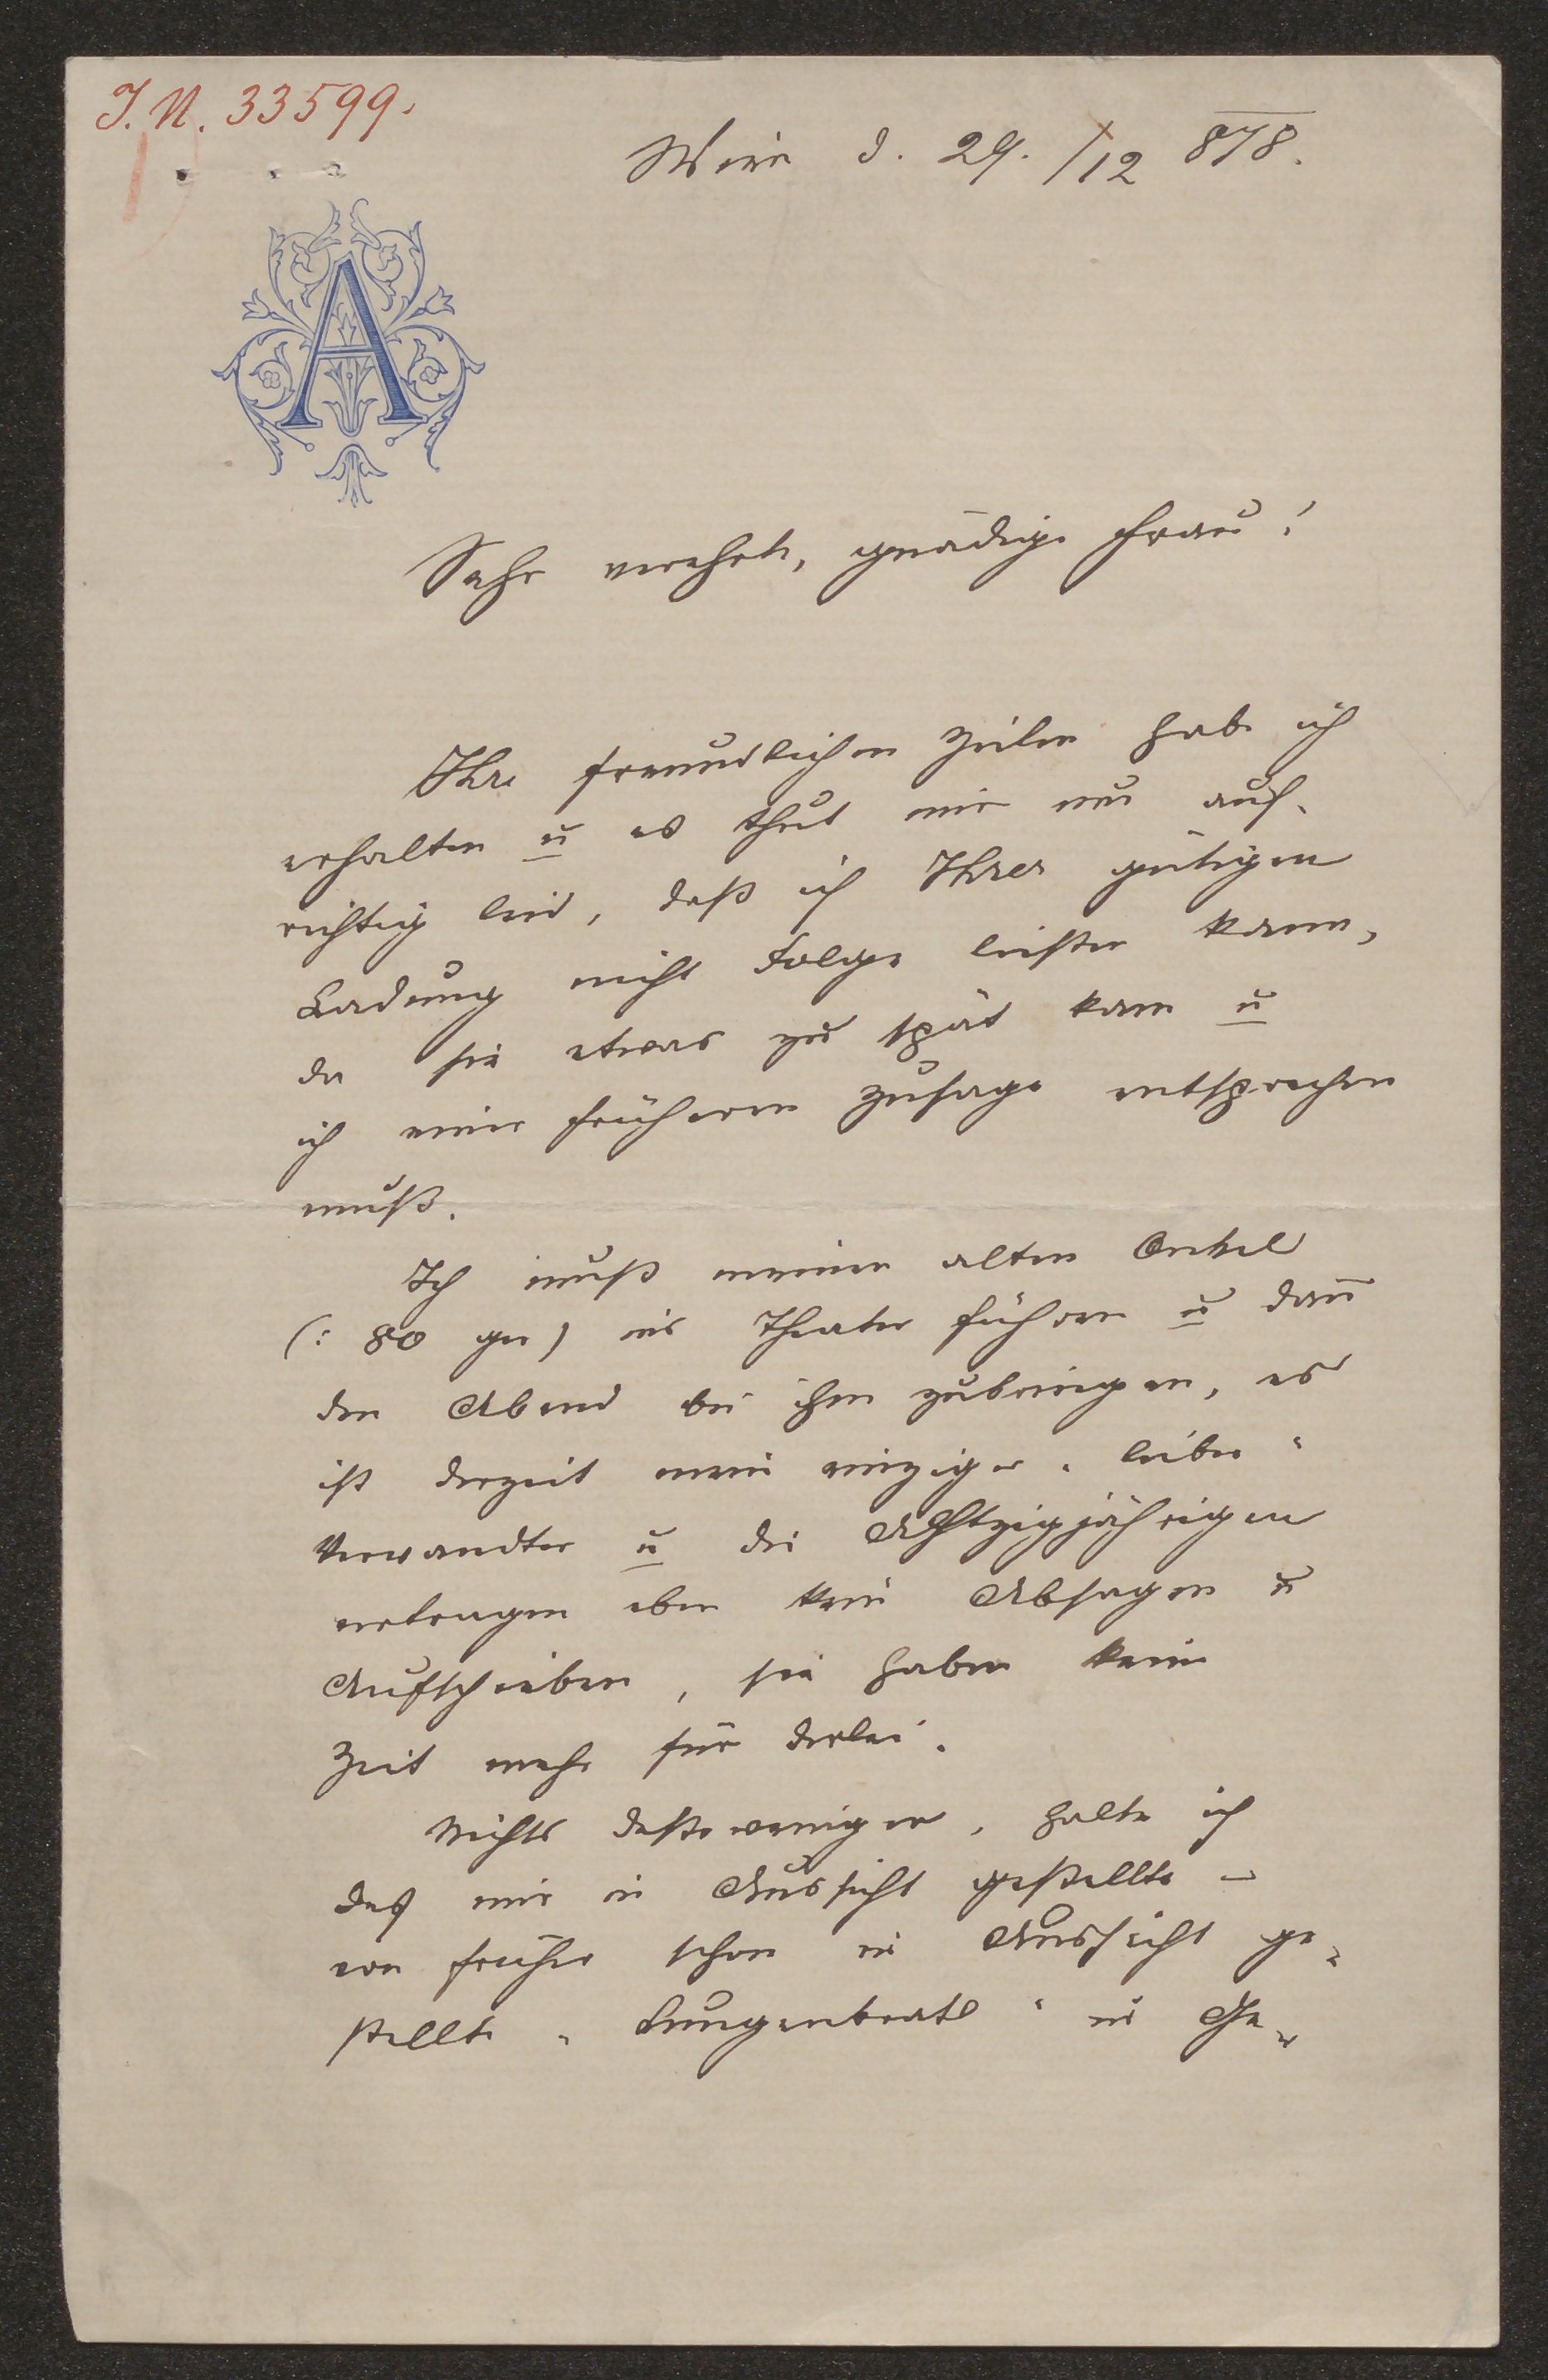 I. N. 33599.
Wien d. 29./12 878.
A
Sehr verehrte, gnädige Frau!
Ihre freundlichen Zeilen habe ich
erhalten u es thut mir nun auf-
richtig leid, daß ich Ihrer gütigen
Ladung nicht Folge leisten kann,
da sie etwas zu spät kam u
ich einer früheren Zusage entsprechen
muß.
Ich muß meinen alten Onkel
(: 80 ger) ins Theater führen u dann
den Abend bei ihm zubringen, es
ist derzeit mein einziger „lieber“
Verwandter u die Achtzigjährigen
vertragen eben kein Absagen u
Aufschieben, sie haben keine
Zeit mehr für derlei.
Nichts destoweniger, halte ich
das mir in Aussicht gestellte –
von früher schon in Aussicht ge-
stellte „Lungenbratl“ in Ge-